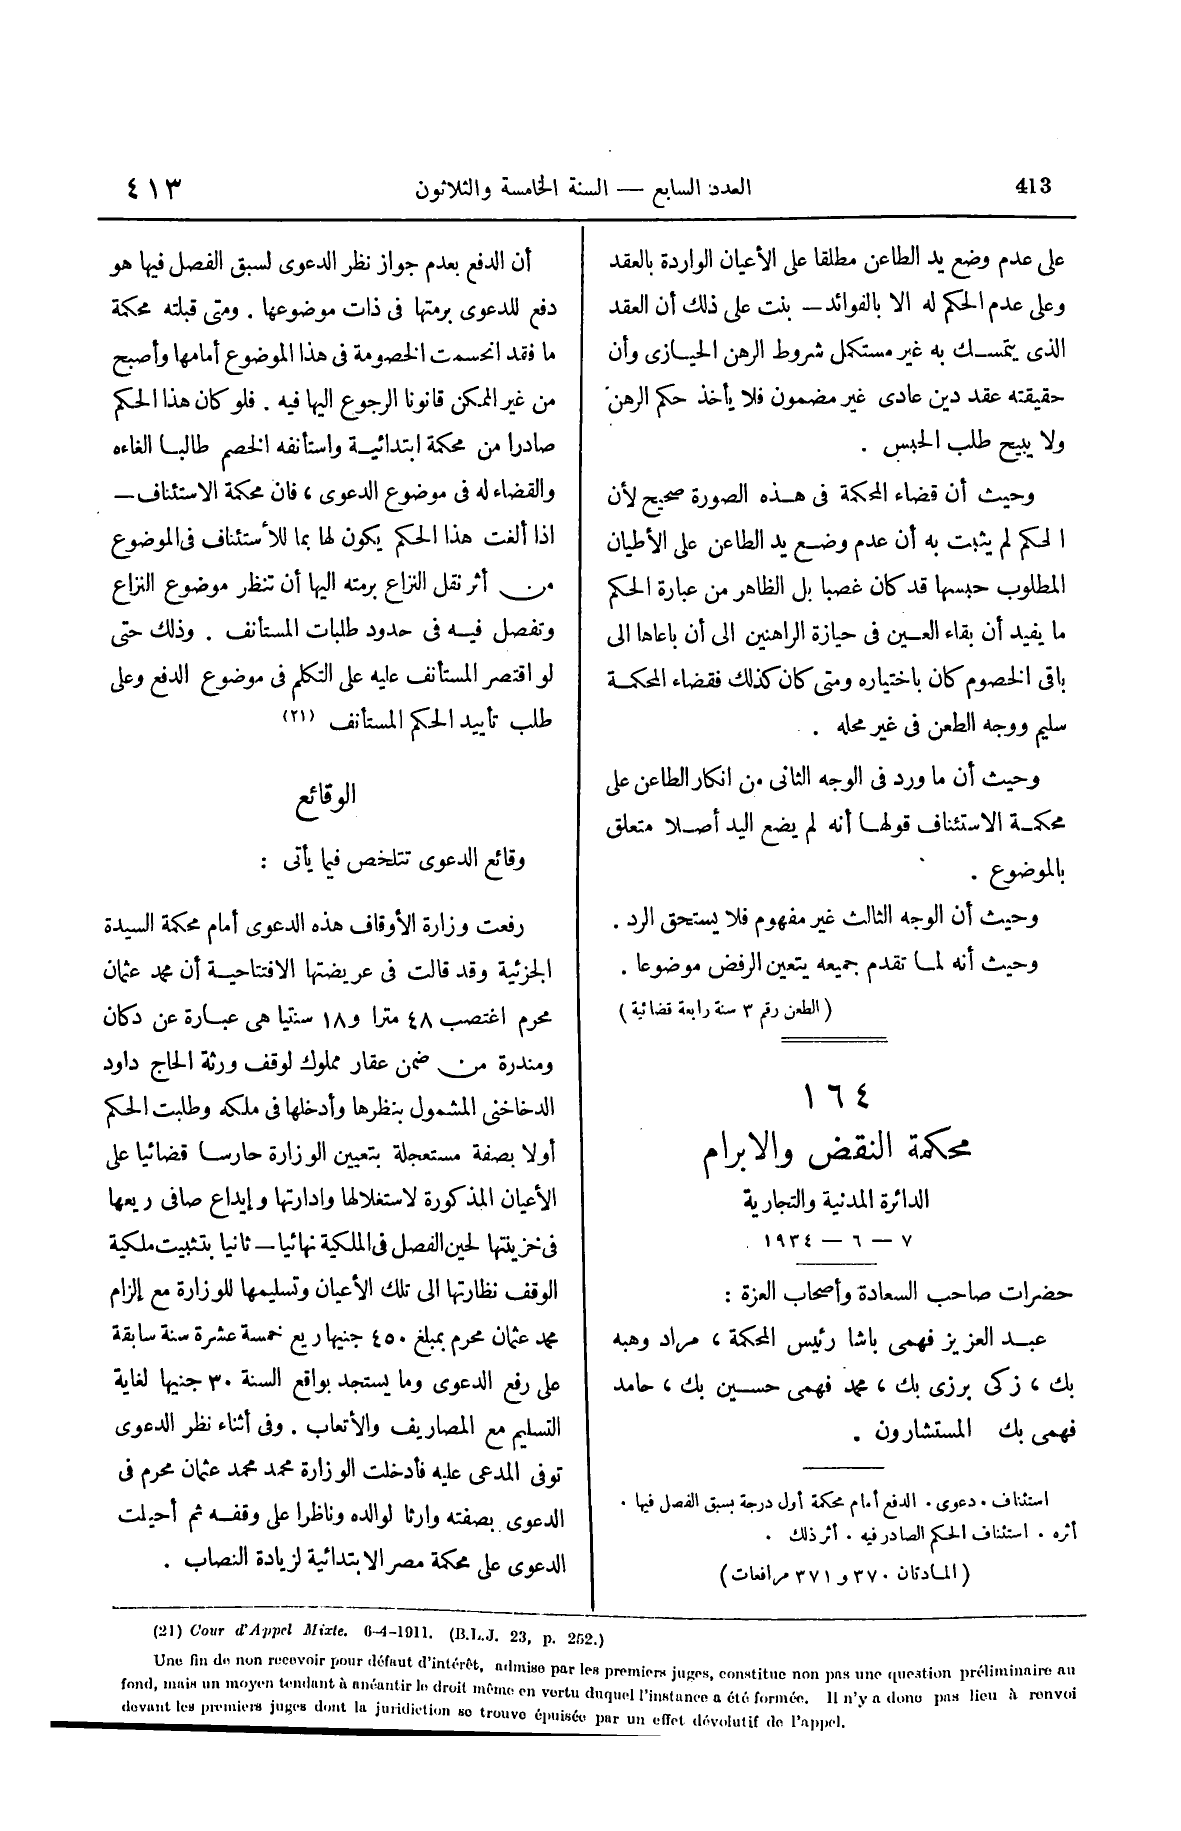 413
العدد السابع — السنة الخامسة والثلاثون
٤١٣
على عدم وضع يد الطاعن مطلقا على الأعيان الواردة بالعقد
وعلى عدم الحكم له الا بالفوائد — بنت على ذلك أن العقد
الذى يتمسك به غير مستكمل شروط الرهن الحيازى وأن
حقيقته عقد دين عادى غير مضمون فلا يأخذ حكم الرهن
ولا يبيح طلب الحبس .
وحيث أن قضاء المحكمة فى هذه الصورة صحيح لأن
الحكم لم يثبت به أن عدم وضع يد الطاعن على الأطيان
المطلوب حبسها قد كان غصبا بل الظاهر من عبارة الحكم
ما يفيد أن بقاء العين فى حيازة الراهنين الى أن باعاها الى
باقى الخصوم كان باختياره ومتى كان كذلك فقضاء المحكمة
سليم ووجه الطعن فى غير محله .
وحيث أن ما ورد فى الوجه الثانى من انكار الطاعن على
محكمة الاستئناف قولها أنه لم يضع اليد أصلا متعلق
بالموضوع .
وحيث أن الوجه الثالث غير مفهوم فلا يستحق الرد .
وحيث أنه لما تقدم جميعه يتعين الرفض موضوعا .
( الطعن رقم ٣ سنة رابعة قضائية )
١٦٤
محكمة النقض والابرام
الدائرة المدنية والتجارية
٧ — ٦ — ١٩٣٤
حضرات صاحب السعادة وأصحاب العزة :
عبد العزيز فهمى باشا رئيس المحكمة ، مراد وهبه
بك ، زكى برزى بك ، محمد فهمى حسين بك ، حامد
فهمى بك المستشارون .
استئناف . دعوى . الدفع أمام محكمة أول درجة بسبق الفصل فيها .
أثره . استئناف الحكم الصادر فيه . أثر ذلك .
( المادتان ٣٧٠ و ٣٧١ مرافعات )
أن الدفع بعدم جواز نظر الدعوى لسبق الفصل فيها هو
دفع للدعوى برمتها فى ذات موضوعها . ومتى قبلته محكمة
ما فقد انحسمت الخصومة فى هذا الموضوع أمامها وأصبح
من غير الممكن قانونا الرجوع اليها فيه . فلو كان هذا الحكم
صادرا من محكمة ابتدائية واستأنفه الخصم طالبا الغاءه
والقضاء له فى موضوع الدعوى ، فان محكمة الاستئناف —
اذا ألغت هذا الحكم يكون لها بما للأستئناف فى الموضوع
من أثر نقل النزاع برمته اليها أن تنظر موضوع النزاع
وتفصل فيه فى حدود طلبات المستأنف . وذلك حتى
لو اقتصر المستأنف عليه على التكلم فى موضوع الدفع وعلى
طلب تأييد الحكم المستأنف (٢١)
الوقائع
وقائع الدعوى تتلخص فيما يأتى :
رفعت وزارة الأوقاف هذه الدعوى أمام محكمة السيدة
الجزئية وقد قالت فى عريضتها الافتتاحية أن محمد عثمان
محرم اغتصب ٤٨ مترا و١٨ سنتيا هى عبارة عن دكان
ومندرة من ضمن عقار مملوك لوقف ورثة الحاج داود
الدخاخنى المشمول بنظرها وأدخلها فى ملكه وطلبت الحكم
أولا بصفة مستعجلة بتعيين الوزارة حارسا قضائيا على
الأعيان المذكورة لاستغلالها وادارتها وإيداع صافى ريعها
فى خزينتها لحين الفصل فى الملكية نهائيا — ثانيا بتثبيت ملكية
الوقف نظارتها الى تلك الأعيان وتسليمها للوزارة مع إلزام
محمد عثمان محرم بمبلغ ٤٥٠ جنيها ريع خمسة عشرة سنة سابقة
على رفع الدعوى وما يستجد بواقع السنة ٣٠ جنيها لغاية
التسليم مع المصاريف والأتعاب . وفى أثناء نظر الدعوى
توفى المدعى عليه فأدخلت الوزارة محمد محمد عثمان محرم فى
الدعوى بصفته وارثا لوالده وناظرا على وقفه ثم أحيلت
الدعوى على محكمة مصر الابتدائية لزيادة النصاب .
(21) Cour d'Appel Mixte. 6-4-1911. (B.L.J. 23, p. 252.)
Une fin de non recevoir pour défaut d'intérêt, admise par les premiers juges, constitue non pas une question préliminaire au
fond, mais un moyen tendant à anéantir le droit même en vertu duquel l'instance a été formée. Il n'y a donc pas lieu à renvoi
devant les premiers juges dont la juridiction se trouve épuisée par un effet dévolutif de l'appel.